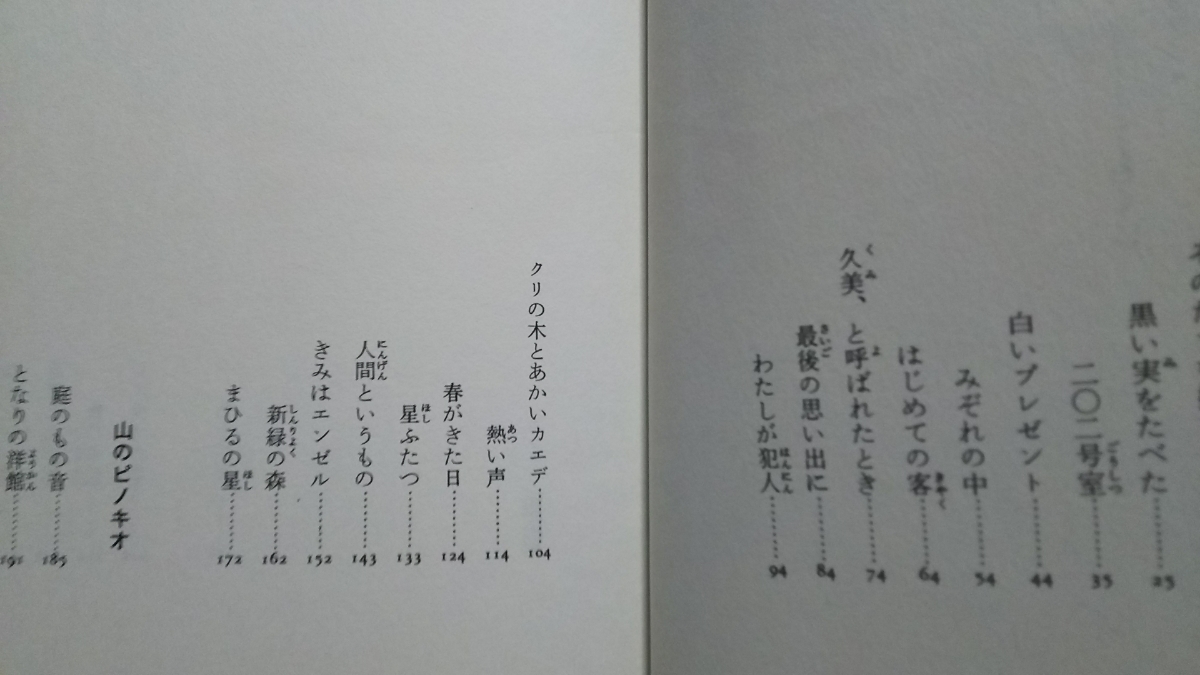 黒い実をたべた………25
二〇二号室………35
白いプレゼント………44
みぞれの中………54
はじめての客………64
久美、と呼ばれたとき………74
最後の思い出に………84
わたしが犯人………94
クリの木とあかいカエデ………104
熱い声………114
春がきた日………124
星ふたつ………133
人間というもの………143
きみはエンゼル………152
新緑の森………162
まひるの星………172
山のピノキオ
庭のもの音………185
となりの洋館………191